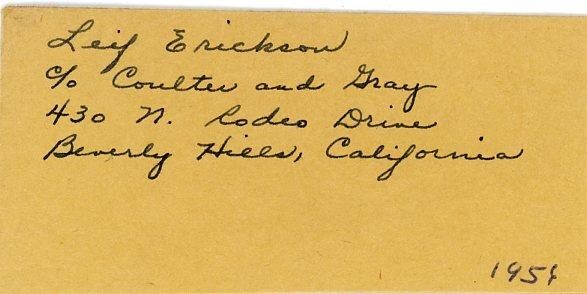 Leif Erickson
c/o Coulter and Gray
430 N. Rodeo Drive
Beverly Hills, California
1954